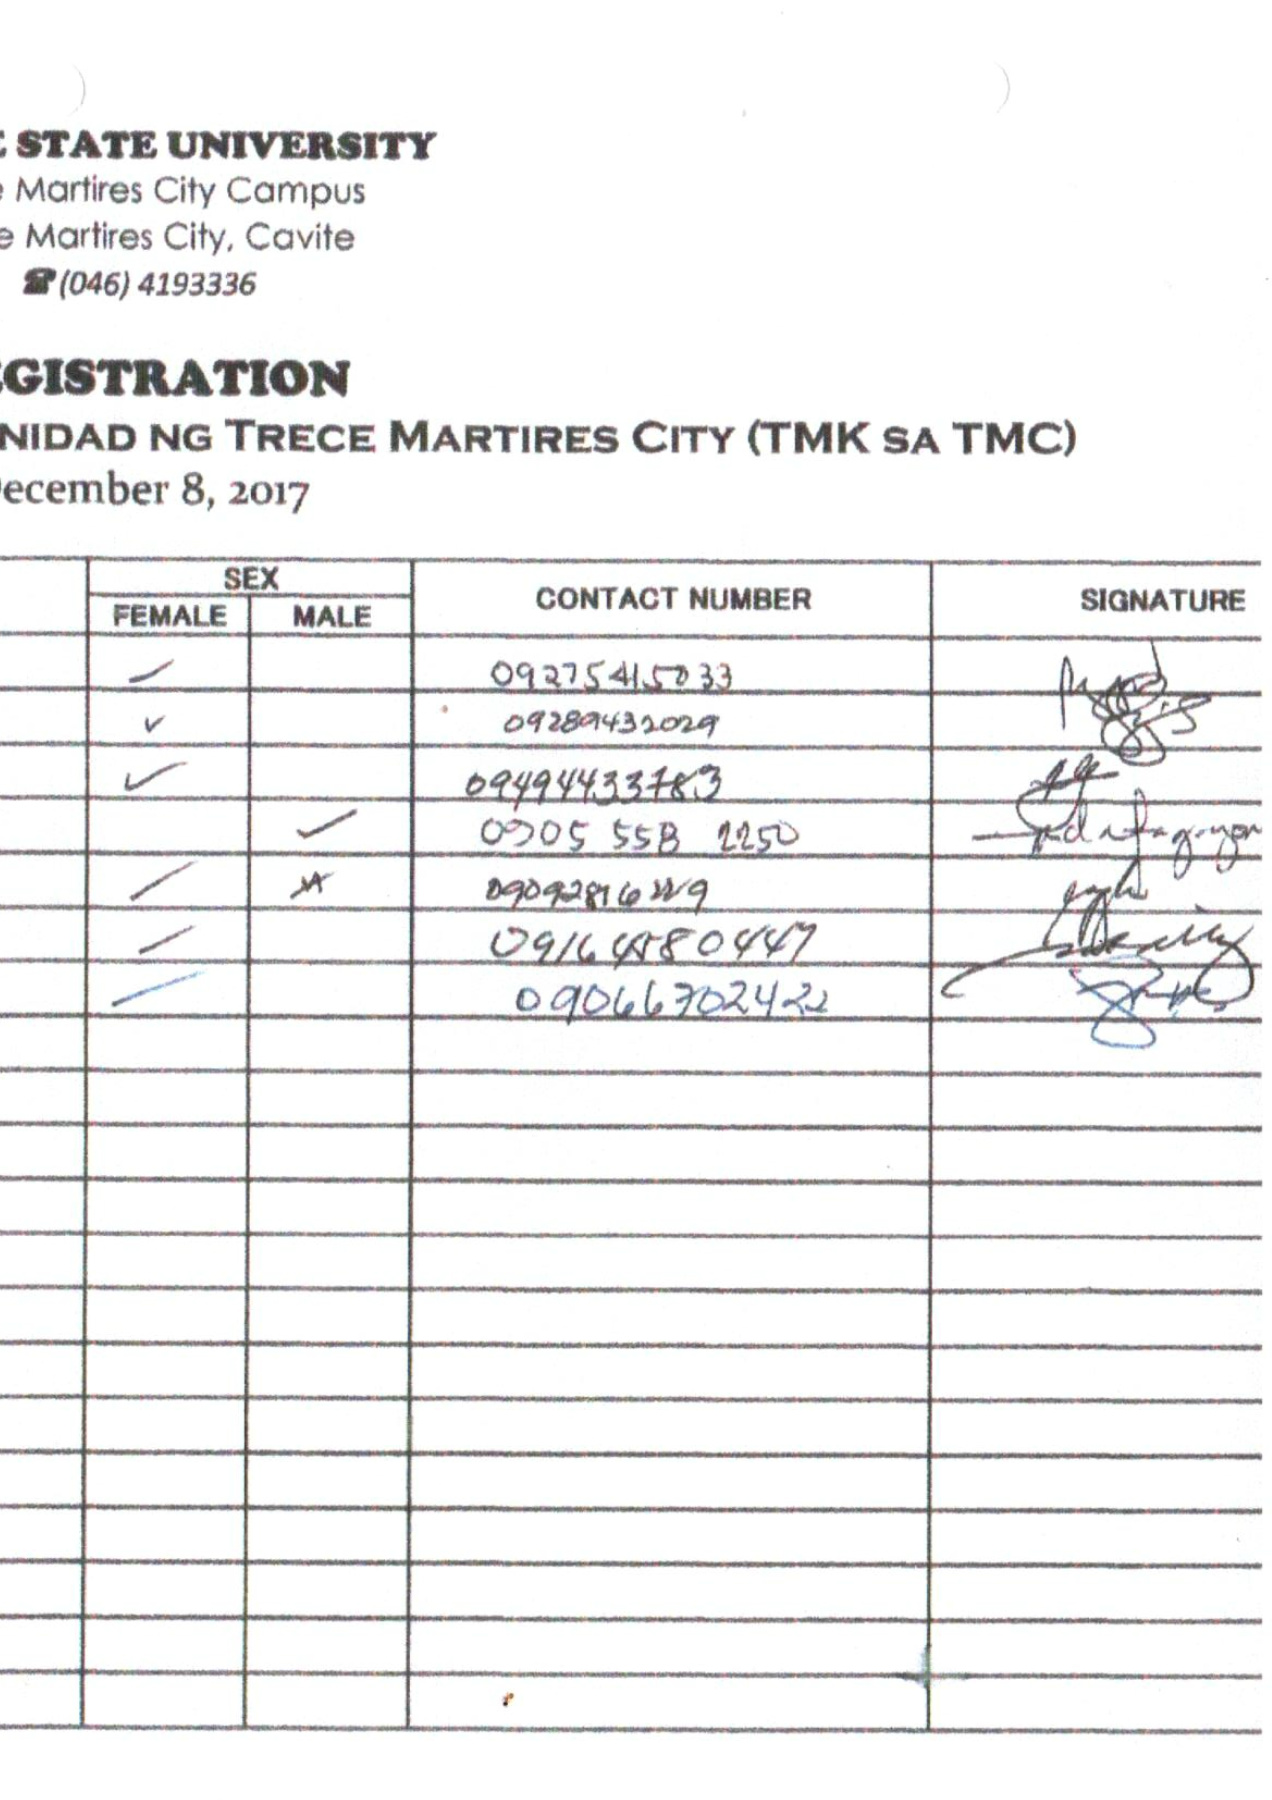 E STATE UNIVERSITY
e Martires City Campus
e Martires City, Cavite
☎(046) 4193336
EGISTRATION
NIDAD NG TRECE MARTIRES CITY (TMK SA TMC)
December 8, 2017
SEX
CONTACT NUMBER
SIGNATURE
FEMALE MALE
09275415033
09289432029
09494433783
0905 558 2250
09164580447
09066702422